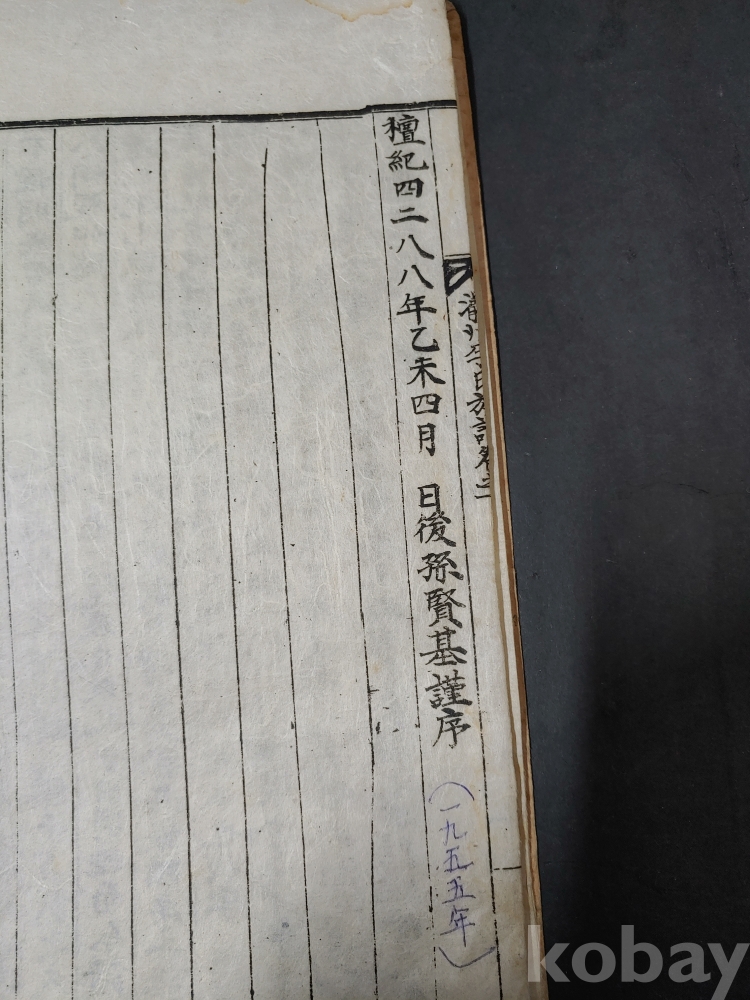 檀紀四二八八年乙未四月 日後孫賢基謹序
(一九五五年)
李氏族譜卷之
kobay